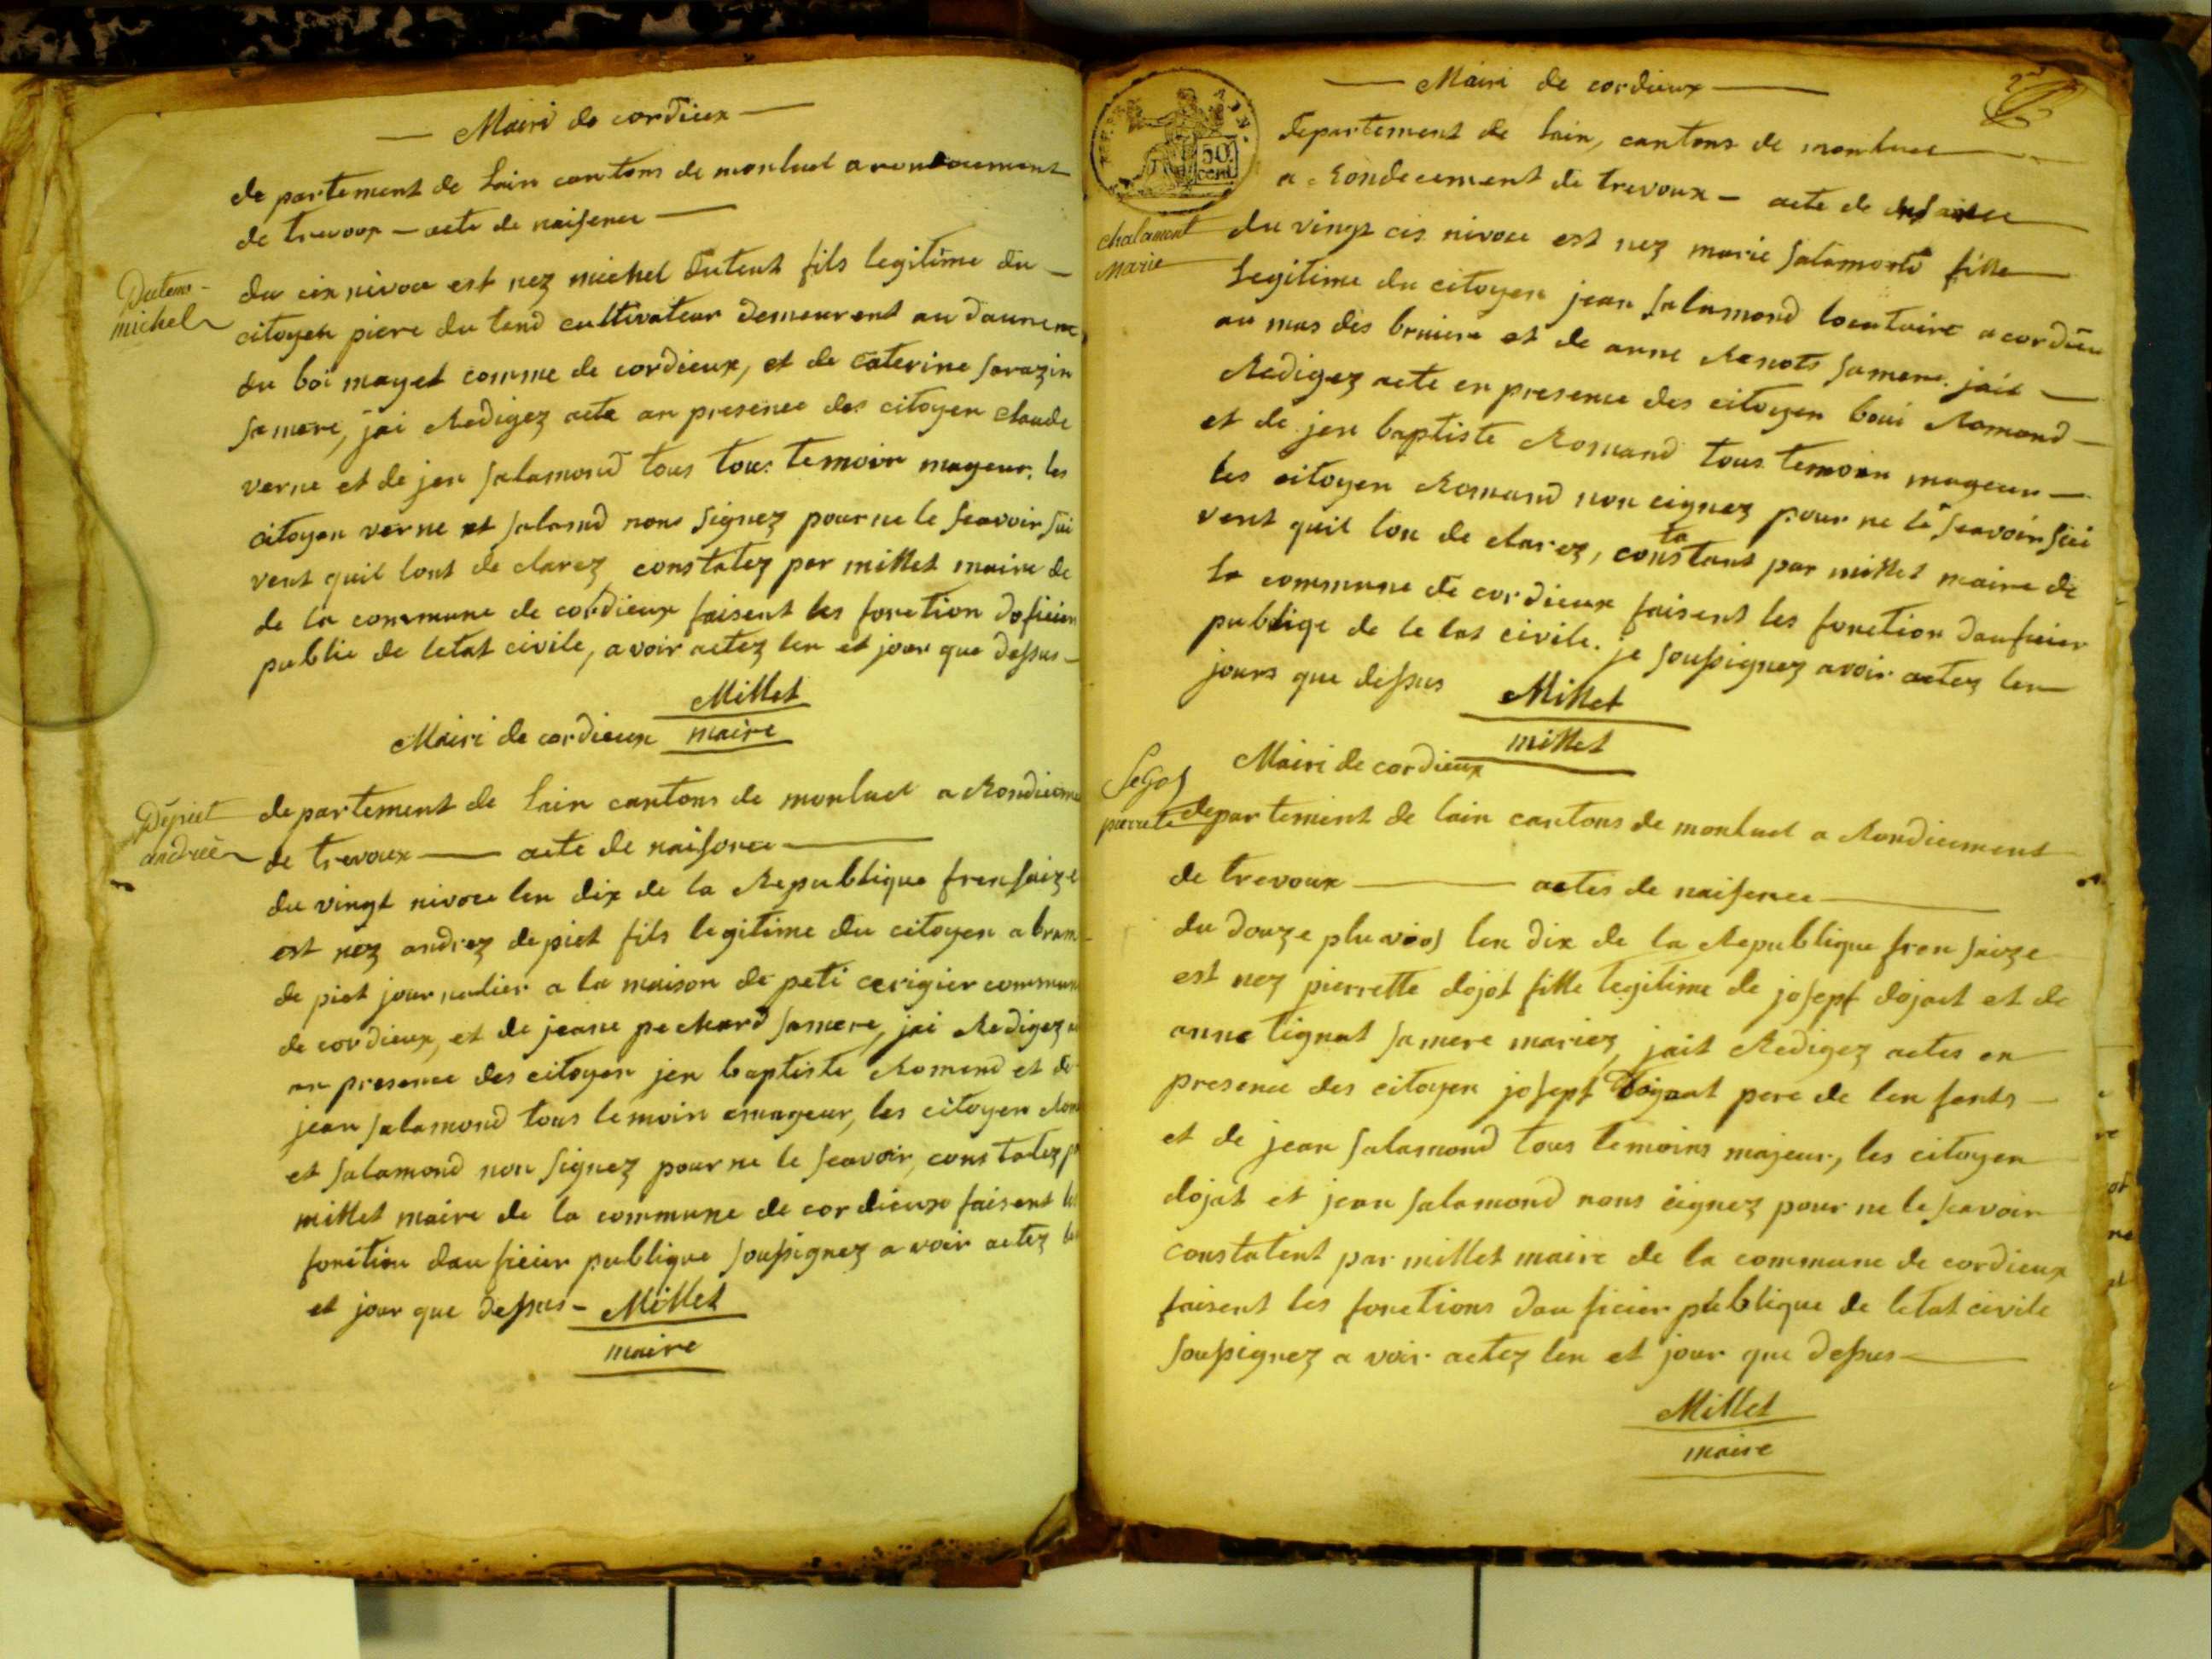 Mairi de cordieux
de partement de lain cantons de monluel arondicement
de trevoux — acte de naisence
Dutens michel
du cix nivoce est nez michel Dutent fils legitime du
citoyen piere du tend cultivateur demeurent au
du boi mayet comme de cordieux, et de caterine sarazin
sa mere, jai Redigez acte an presence des citoyen claude
verne et de jen salamond tous tous temoin mageur, les
citoyen verne et salamd nons signez pour ne le scavoir sui
vent quil lont de clarez constatez par millet maire de
de la commune de cordieux faisent les fonction doficier
public de letat civile, avoir actez len et jour que dessus
Millet
maire
Mairi de cordieux
Depiet andreé
departement de lain cantons de monluel a Rondiceme
de trevoux — acte de naisence
du vingt nivoce len dix de la Republique frensaize
est nez andrez depiet fils legitime du citoyen abram
de piet journalier a la maison de peti cerigier commune
de cordieux, et de jeane pechard sa mere, jai Redigez a
an presence des citoyen jen baptiste Romend et de
jean salamond tous temoin emageur, les citoyen Rom
et salamond non signez pour ne le scavoir, constatez p
millet maire de la commune de cordieux faisent les
fonction dauficier publique soussignez a voir actez len
et jour que dessus — Millet
maire
2
Mairi de cordieux
50 cent
departement de lain, cantons de monluel
a Rondecement de trevoux — acte de
chalamont Marie
du vingt cis nivoce est nez marie salamond fille
legitime du citoyen jean salamond locataire a cordieu
au mas des bruiere et de anne Renots sa mere. jait
Redigez acte en presence des citoyen boui Romand
et de jen baptiste Romand tous temoin mageur
les citoyen Romand non cignez pour ne le scavoir sui
vent quil lon de clarez, constatant par millet maire de
la commune de cordieux faisent les fonction dauficier
publige de le tat civile. je soussignez avoir actez len
jours que dessus Millet
millet
Mairi de cordieux
Segos pierrete
departement de lain cantons de monluel a Rondicement
de trevoux — actes de naisence
du douze pluvios len dix de la Republique fren saize
est nez pierrette dojot fille legitime de josept dojat et de
anne tignat sa mere mariez, jait Redigez actes en
presence des citoyen josept pere de len fents
et de jean salamond tous temoins majeur, les citoyen
dojat et jean salamond nons cignez pour ne le scavoir
constatent par millet maire de la commune de cordieux
faisent les fonctions dauficier publique de letat civile
soussignez a voir actez len et jour que dessus
Millet
maire